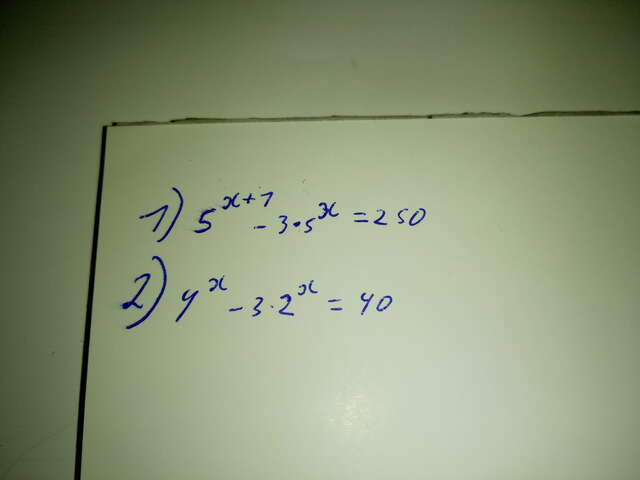 1) 5^{x+1} - 3·5^x = 250
2) 4^x - 3·2^x = 40